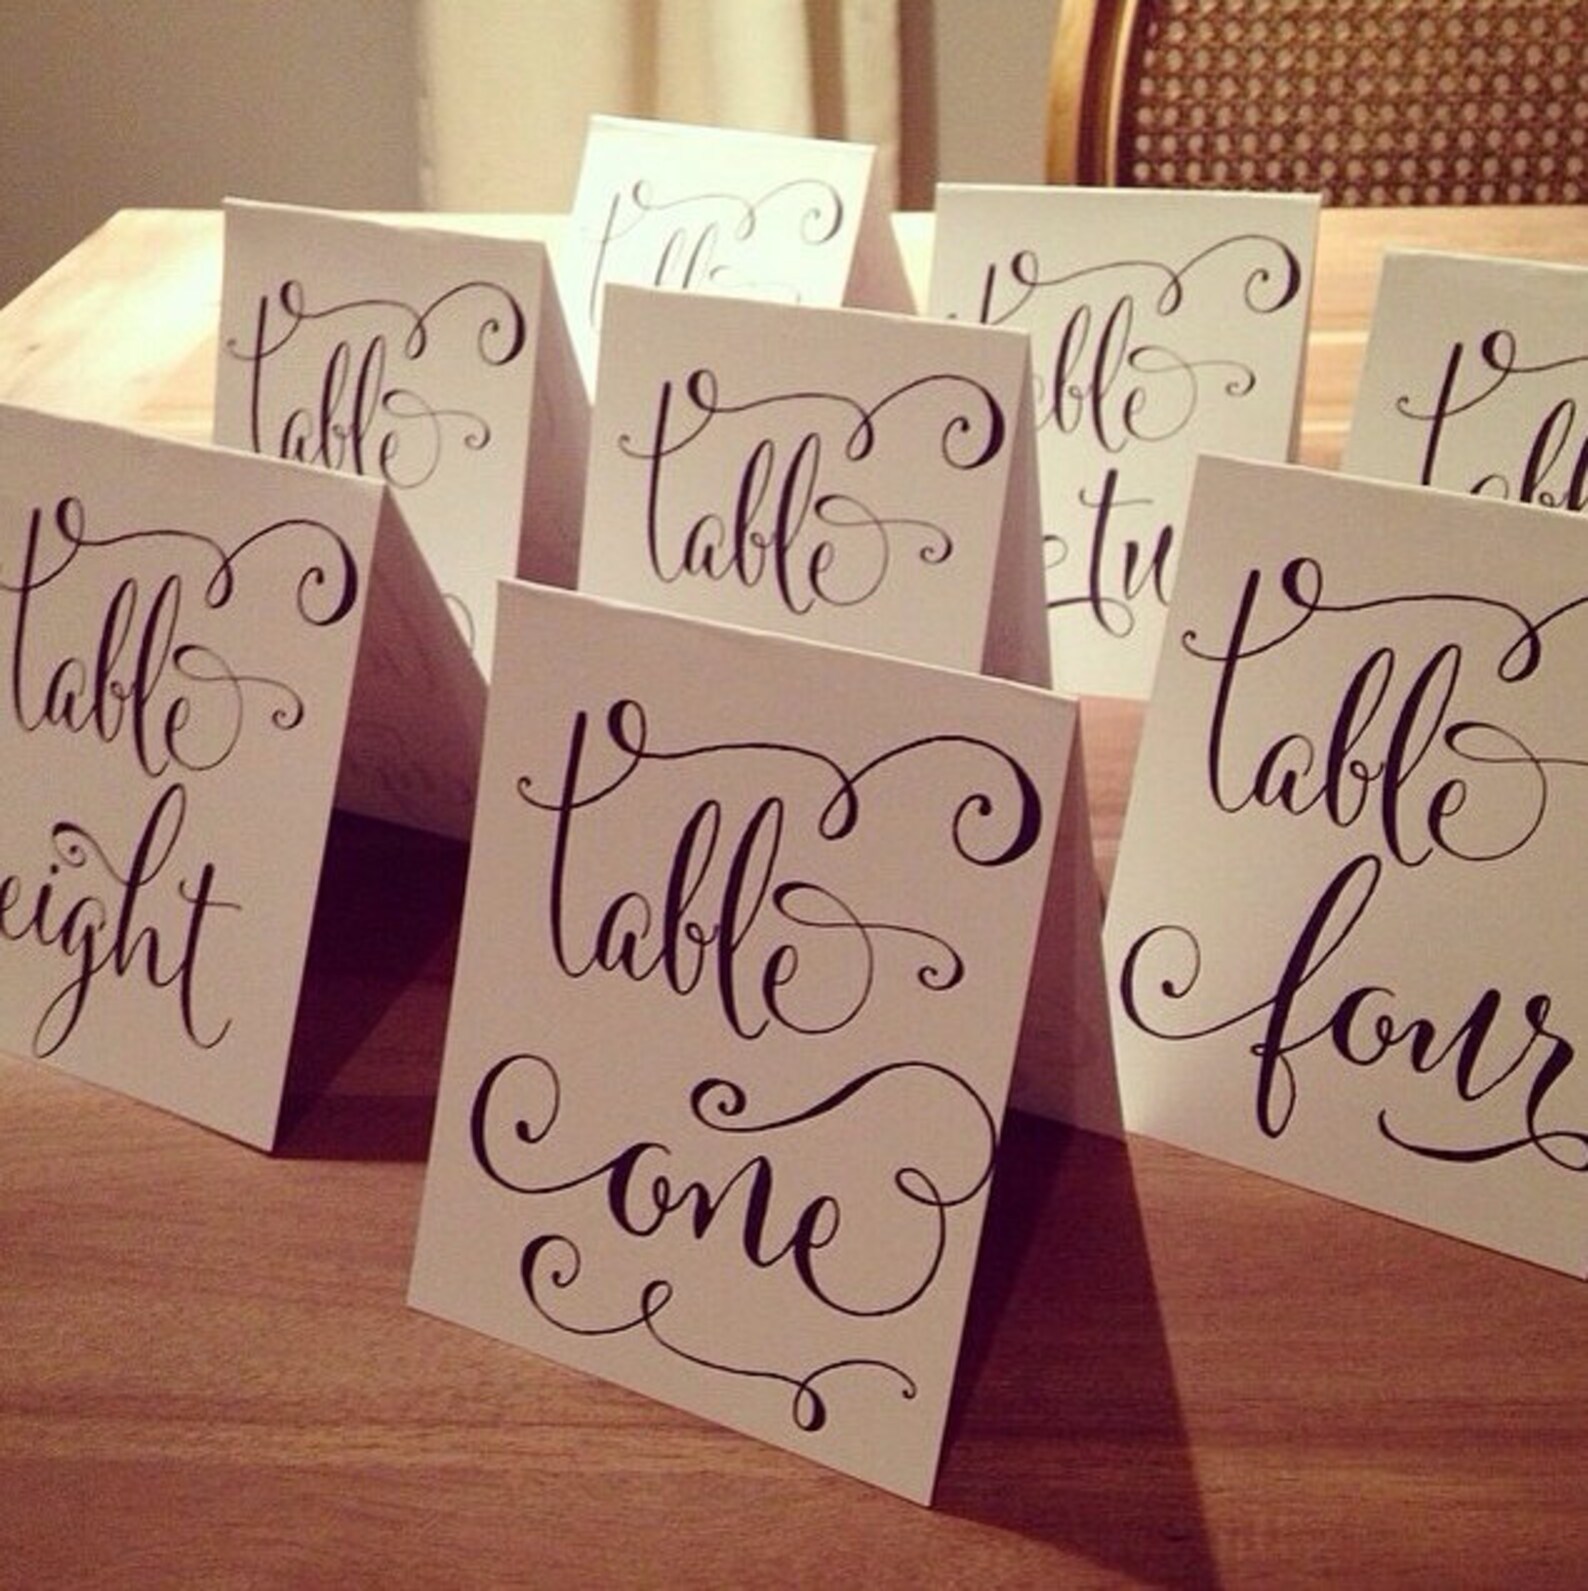 table
table
table
table
table
table
eight
table
one
table
four